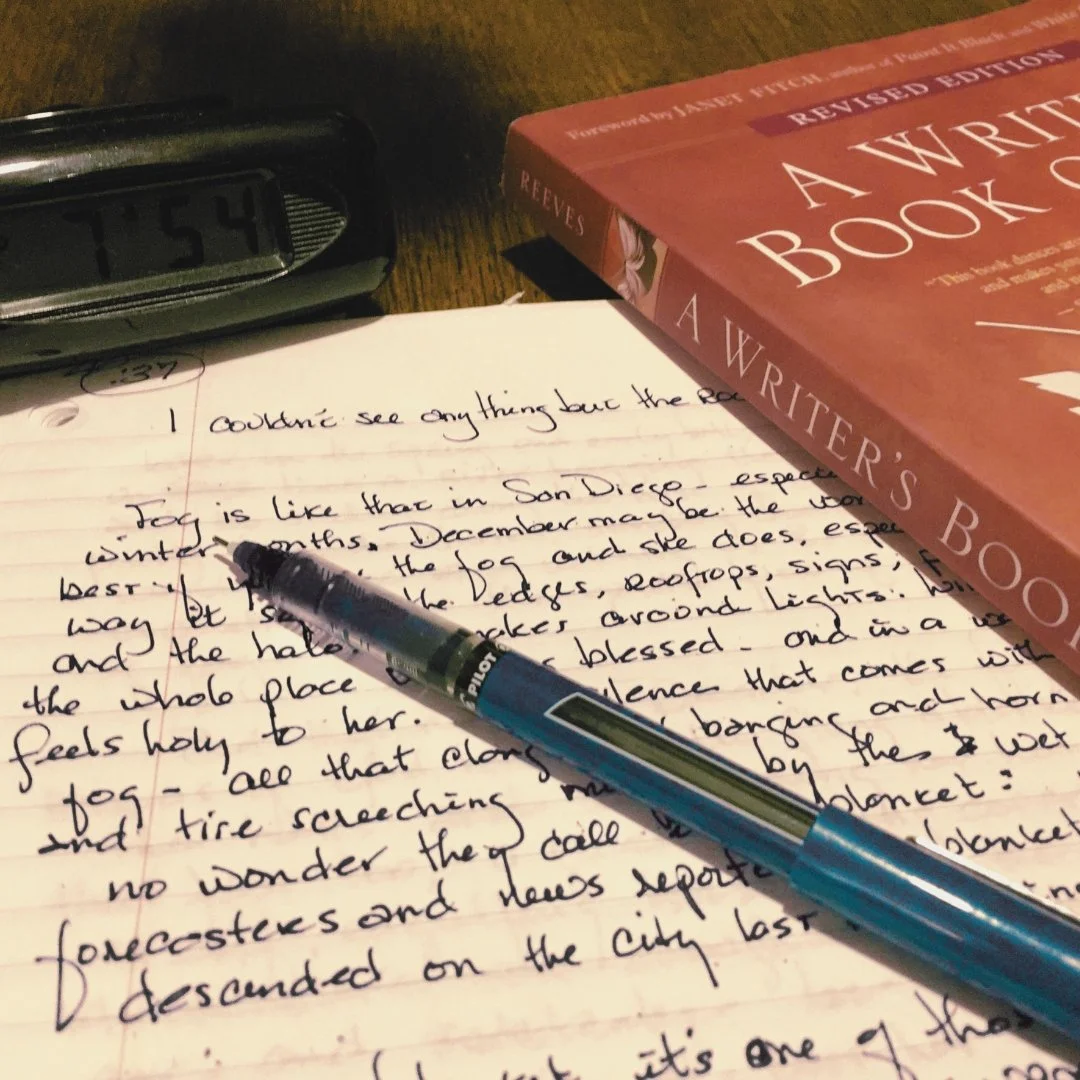 7:54
Foreword by JANET FITCH, author of Paint It Black and White
REVISED EDITION
A WRIT
BOOK O
"This book dances
and makes you
and
REEVES
A WRITER'S BOO
:37
I couldn't see anything but the
Fog is like that in San Diego - espec
winter onths. December may be the wor
best if the fog and she does, espe
way it the edges, rooftops, signs, f
and the halo akes around lights.
the whole place blessed - and in a
feels holy to her. lence that comes with
fog - all that clang banging and horn
and tire screeching by the wet
no wonder they call blanket:
forecasters and news reporte blanket
descended on the city last
it's one of thos
PILOT